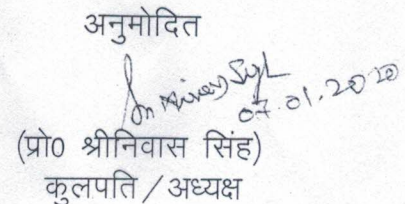 अनुमोदित
07.01.2020
(प्रो0 श्रीनिवास सिंह)
कुलपति / अध्यक्ष